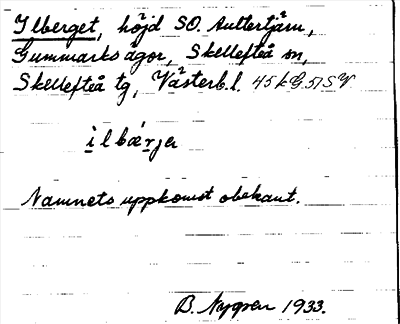 Ilberget, höjd SO. Aultertjärn,
Gummarks ägor, Skellefteå sn,
Skellefteå tg, Västerb. l. 45 k G. 51 SV
ilbærja
Namnets uppkomst obekant.
B. Nygren 1933.